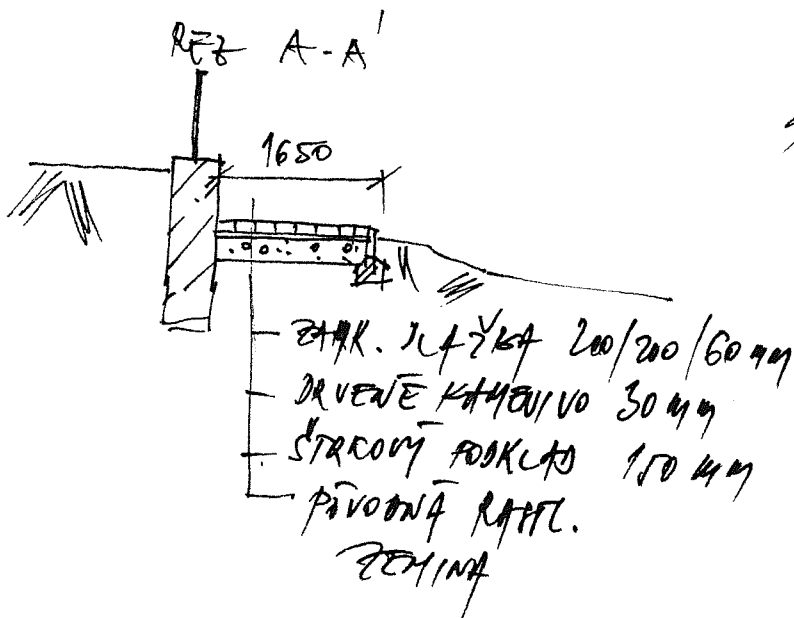 REZ A-A'
1650
ZÁMK. DLAŽBA 200/200/60 mm
DRVENÉ KAMENIVO 30 mm
ŠTRKOVÝ PODKLAD 150 mm
PÔVODNÁ RASTL.
ZEMINA